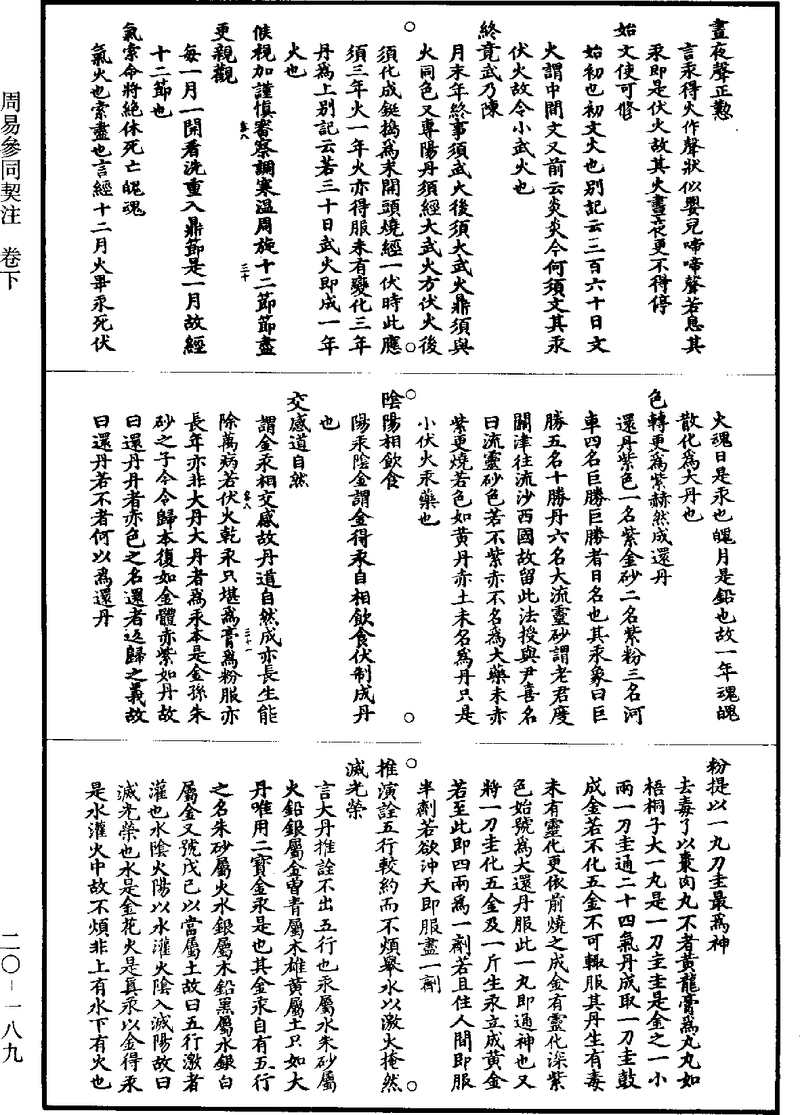 周易參同契注　卷下
二〇－一八九
晝夜聲正懃
言汞得火作聲狀似嬰兒啼啼聲若息其
汞即是伏火故其火晝夜更不得停
始文使可修
始初也初文火也別記云三百六十日文
火謂中間文又前云炎炎今何須文其汞
伏火故令小武火也
終竟武乃陳
月末年終事須武火後須大武火鼎須與
火同色又專陽丹須經大武火方伏火後
須化成鋌搗為末開頭燒經一伏時此應
須三年火一年火亦得服未有變化三年
丹為上別記云若三十日武火即成一年
火也
候視加謹慎審察調寒溫周旋十二節節盡
更親觀
每一月一開看洗重入鼎節是一月故經
十二節也
氣索命將絕休死亡魄魂
氣火也索盡也言經十二月火畢汞死伏
火魂日是汞也魄月是鉛也故一年魂魄
散化為大丹也
色轉更為紫赫然成還丹
還丹紫色一名紫金砂二名紫粉三名河
車四名巨勝巨勝者日名也其汞象曰巨
勝五名十勝丹六名大流靈砂謂老君度
關津往流沙西國故留此法授與尹喜名
曰流靈砂色若不紫亦不名為大藥未亦
紫更燒若色如黃丹赤土未名為丹只是
小伏火汞藥也
陰陽相飲食
陽汞陰金謂金得汞自相飲食伏制成丹
也
交感道自然
謂金汞相交感故丹道自然成亦長生能
除萬病若伏火乾汞只堪為膏為粉服亦
長年亦非大丹大丹者為汞本是金孫朱
砂之子今令歸本復如金體亦紫如丹故
曰還丹丹者赤色之名還者返歸之義故
曰還丹若不者何以為還丹
粉提以一丸刀圭最為神
去毒了以棗肉丸不者黃龍膏為丸丸如
梧桐子大一丸是一刀圭圭是金之一小
兩一刀圭通二十四氣丹成取一刀圭鼓
成金若不化五金不可輒服其丹生有毒
未有靈化更依前燒之成金有靈化深紫
色始號為大還丹服此一丸即通神也又
將一刀圭化五金及一斤生汞立成黃金
若至此即四兩為一劑若且住人間即服
半劑若欲沖天即服盡一劑
推演詮五行較約而不煩舉水以激火掩然
滅光榮
言大丹推詮不出五行也汞屬水朱砂屬
火鉛銀屬金曾青屬木雄黃屬土只如大
丹唯用二寶金汞是也其金汞自有五行
之名朱砂屬火水銀屬木鉛黑屬水銀白
屬金又號戊己以當屬土故曰五行激者
灌也水陰火陽以水灌火陰入滅陽故曰
滅光榮也水是金花火是真汞以金得汞
是水灌火中故不煩非上有水下有火也